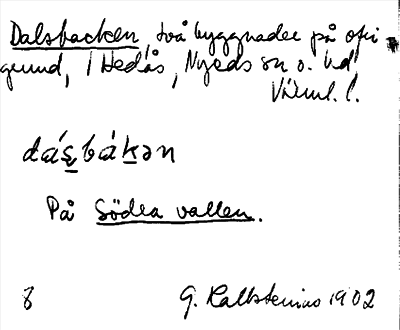 Dalsbacken, två byggnader på ofri
grund, i Hedås, Nyeds sn o. hd
Värml. l.
dásbákən
På Södra vallen.
8 G. Kallstenius 1902